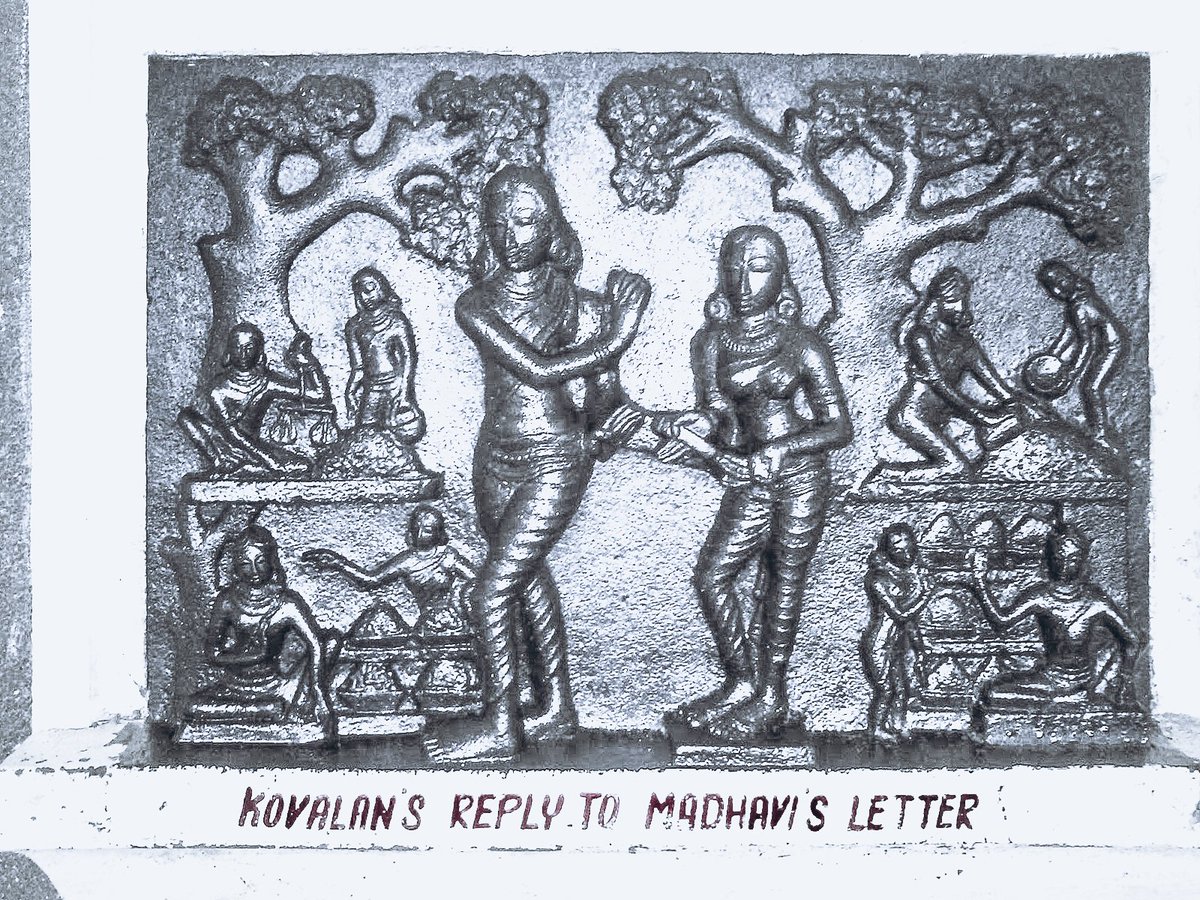 KOVALAN'S REPLY TO MADHAVI'S LETTER